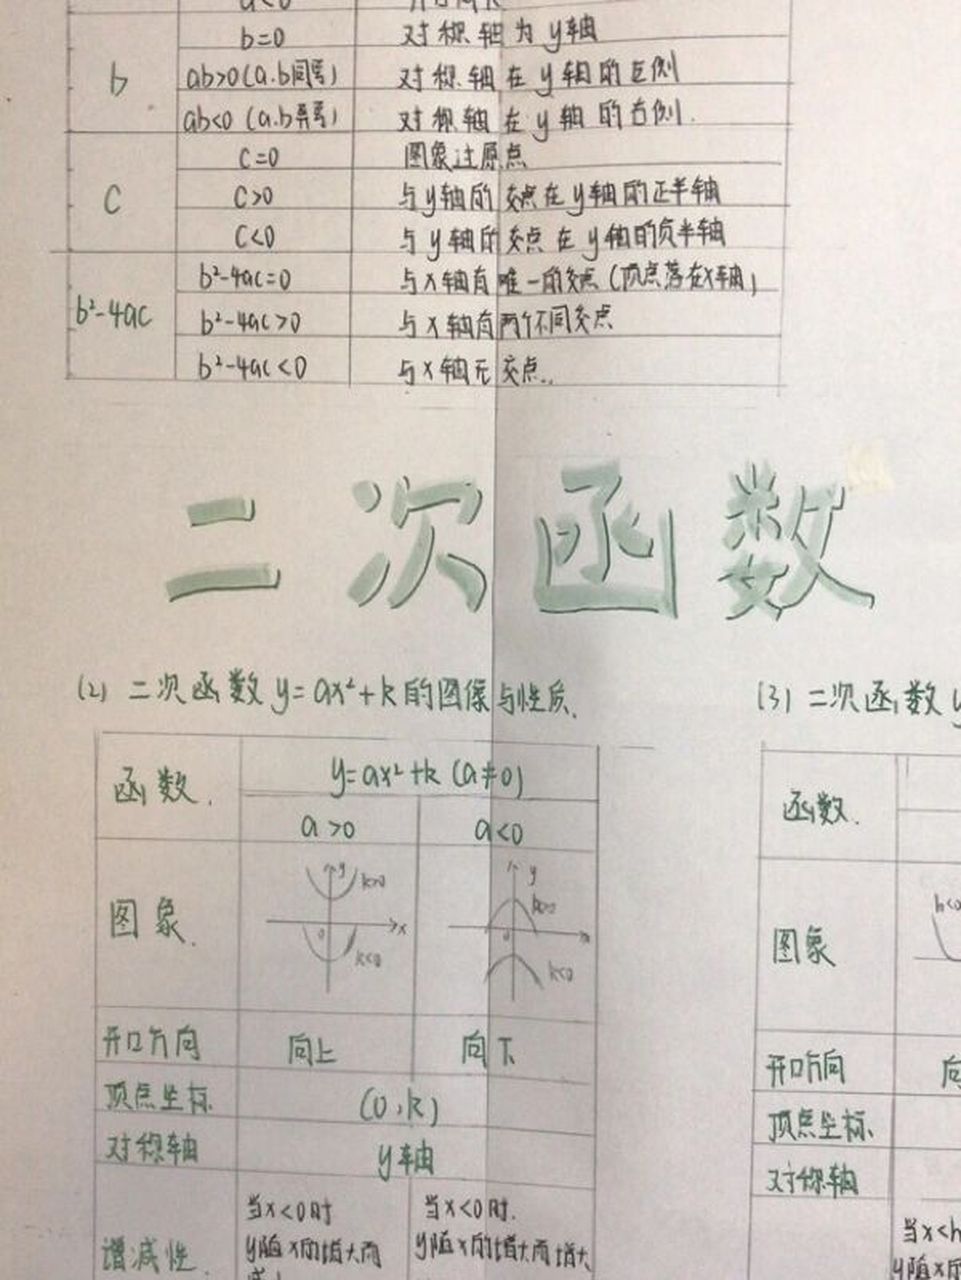 a<0
b
b=0 对称轴为y轴
ab>0(a.b同号) 对称轴在y轴的左侧
ab<0 (a.b异号) 对称轴在y轴的右侧.
C
C=0 图象过原点
C>0 与y轴的交点在y轴的正半轴
C<0 与y轴的交点在y轴的负半轴
b²-4ac
b²-4ac=0 与x轴有唯一的交点(顶点落在x轴)
b²-4ac>0 与x轴有两个不同交点
b²-4ac<0 与x轴无交点..
二次函数
(2) 二次函数y=ax²+k的图像与性质.
(3) 二次函数y
函数.
y=ax²+k (a≠0)
a>0 a<0
函数.
图象.
y k>0
0 x
k<0
y
k>0
0
k<0
图象
h<0
开口方向 向上 向下
开口方向 向
顶点坐标 (0,k)
顶点坐标.
对称轴 y轴
对称轴
增减性.
当x<0时
y随x的增大而
当x<0时.
y随x的增大而增大
当x<h
y随x的